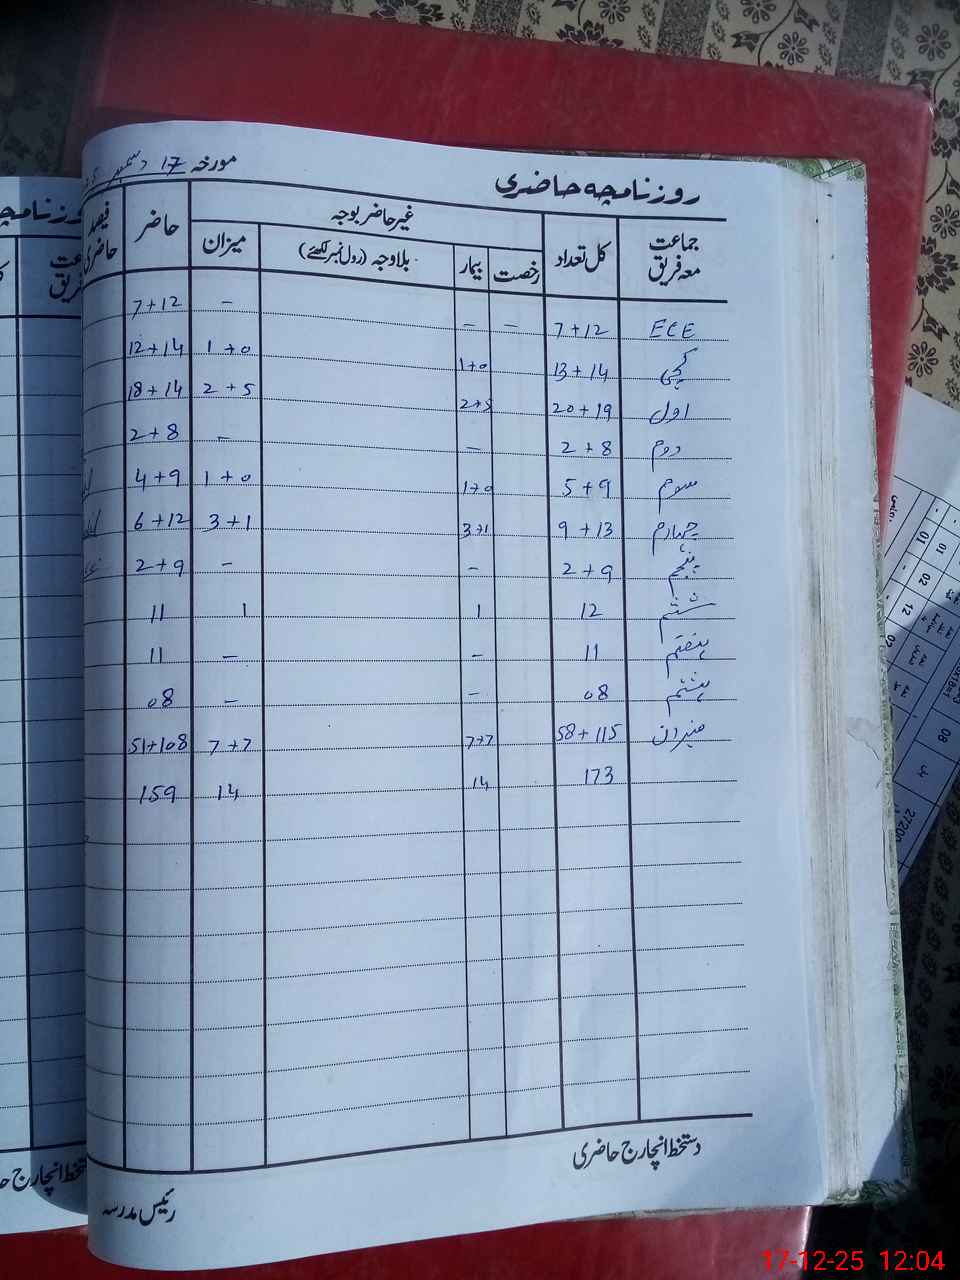 روزنامچہ حاضری
مورخہ 17 دسمبر
جماعت معہ فریق | کل تعداد | غیر حاضر بوجہ | حاضر | فیصد حاضری
رخصت | بیمار | بلاوجہ (رول نمبر لکھئے) | میزان
ECE | 7+12 | - | - | - | 7+12
کچی | 13+14 | 1+0 | 1+0 | 12+14
اول | 20+19 | 2+5 | 2+5 | 18+14
دوم | 2+8 | - | - | 2+8
سوم | 5+9 | 1+0 | 1+0 | 4+9
چہارم | 9+13 | 3+1 | 3+1 | 6+12
پنجم | 2+9 | - | - | 2+9
ششم | 12 | 1 | 1 | 11
ہفتم | 11 | - | - | 11
ہشتم | 08 | - | - | 08
میزان | 58+115 | 7+7 | 7+7 | 51+108
173 | 14 | 14 | 159
دستخط انچارج حاضری
رئیس مدرسہ
01
01
02
12
02
08
27200
17-12-25 12:04